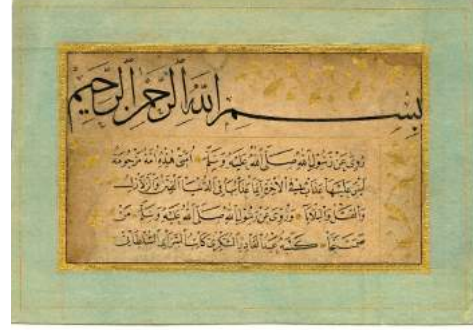 بسم الله الرحمن الرحيم
روى عن رسول الله صلى الله عليه وسلم امتى هذه امة مرحومة
ليس عليها عذاب فى الآخرة انما عذابها فى الدنيا الفتن والزلازل
والقتل والبلايا وروى عن رسول الله صلى الله عليه وسلم من
صمت نجا كتبه عبد القادر الشكرى كاتب السراى السلطانى